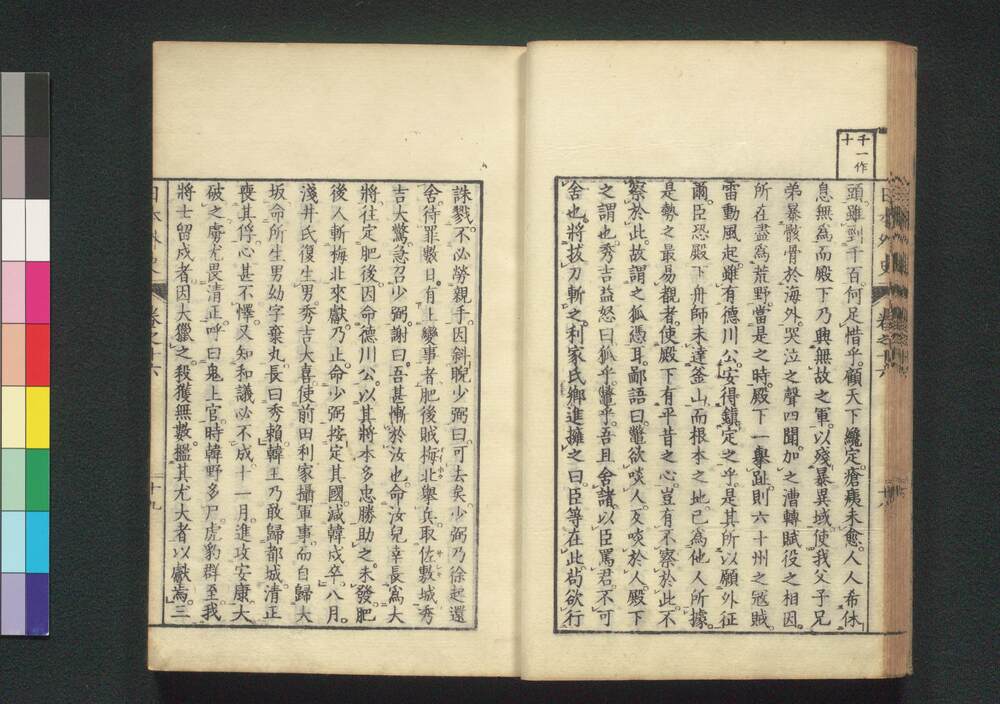 千一作
十
頭雖剄千百何足惜乎顧天下纔定瘡痍未愈人人希休
息無為而殿下乃興無故之軍以殘暴異域使我父子兄
弟暴骸骨於海外哭泣之聲四聞加之漕轉賦役之相因
所在盡為荒野當是之時殿下一擧趾則六十州之冦賊
雷動風起雖有德川公安得鎮定之乎是其所以願外征
爾臣恐殿下舟師未達釜山而根本之地已為他人所據
是勢之最易覩者使殿下有平昔之心豈有不察於此不
察於此故謂之狐憑耳鄙語曰鼈欲啖人反啖於人殿下
之謂也秀吉益怒曰狐乎鼈乎吾且舍諸以臣罵君不可
舍也將拔刀斬之利家氏鄉進擁之曰臣等在此苟欲行
誅戮不必勞親手因斜睨少弼曰可去矣少弼乃徐起還
舍待罪數日有上變事者肥後賊梅北擧兵取佐敷城秀
吉大驚急召少弼謝曰吾甚慚於汝也命汝兒幸長為大
將往定肥後因命德川公以其將本多忠勝助之未發肥
後人斬梅北來獻乃止命少弼按定其國減韓戍卒八月
淺井氏復生男秀吉大喜使前田利家攝軍事而自歸大
坂命所生男幼字棄丸長曰秀賴韓王乃敢歸都城清正
喪其俘心甚不懌又知和議必不成十一月進攻安康大
破之虜尤畏清正呼曰鬼上官時韓野多尸虎豹群至我
將士留戍者因大獵之殺獲無數擂其尤大者以獻焉三
日本外史
卷之十六
十九